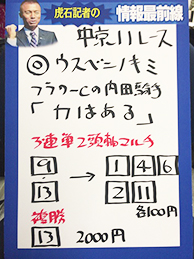 虎石記者の
情報最前線
中京11レース
◎ウスベニノキミ
フラワーCの内田騎手
「力はある」
3連単2頭軸マルチ
9 → 1 4 6
13 2 11
各100円
複勝
13 2000円